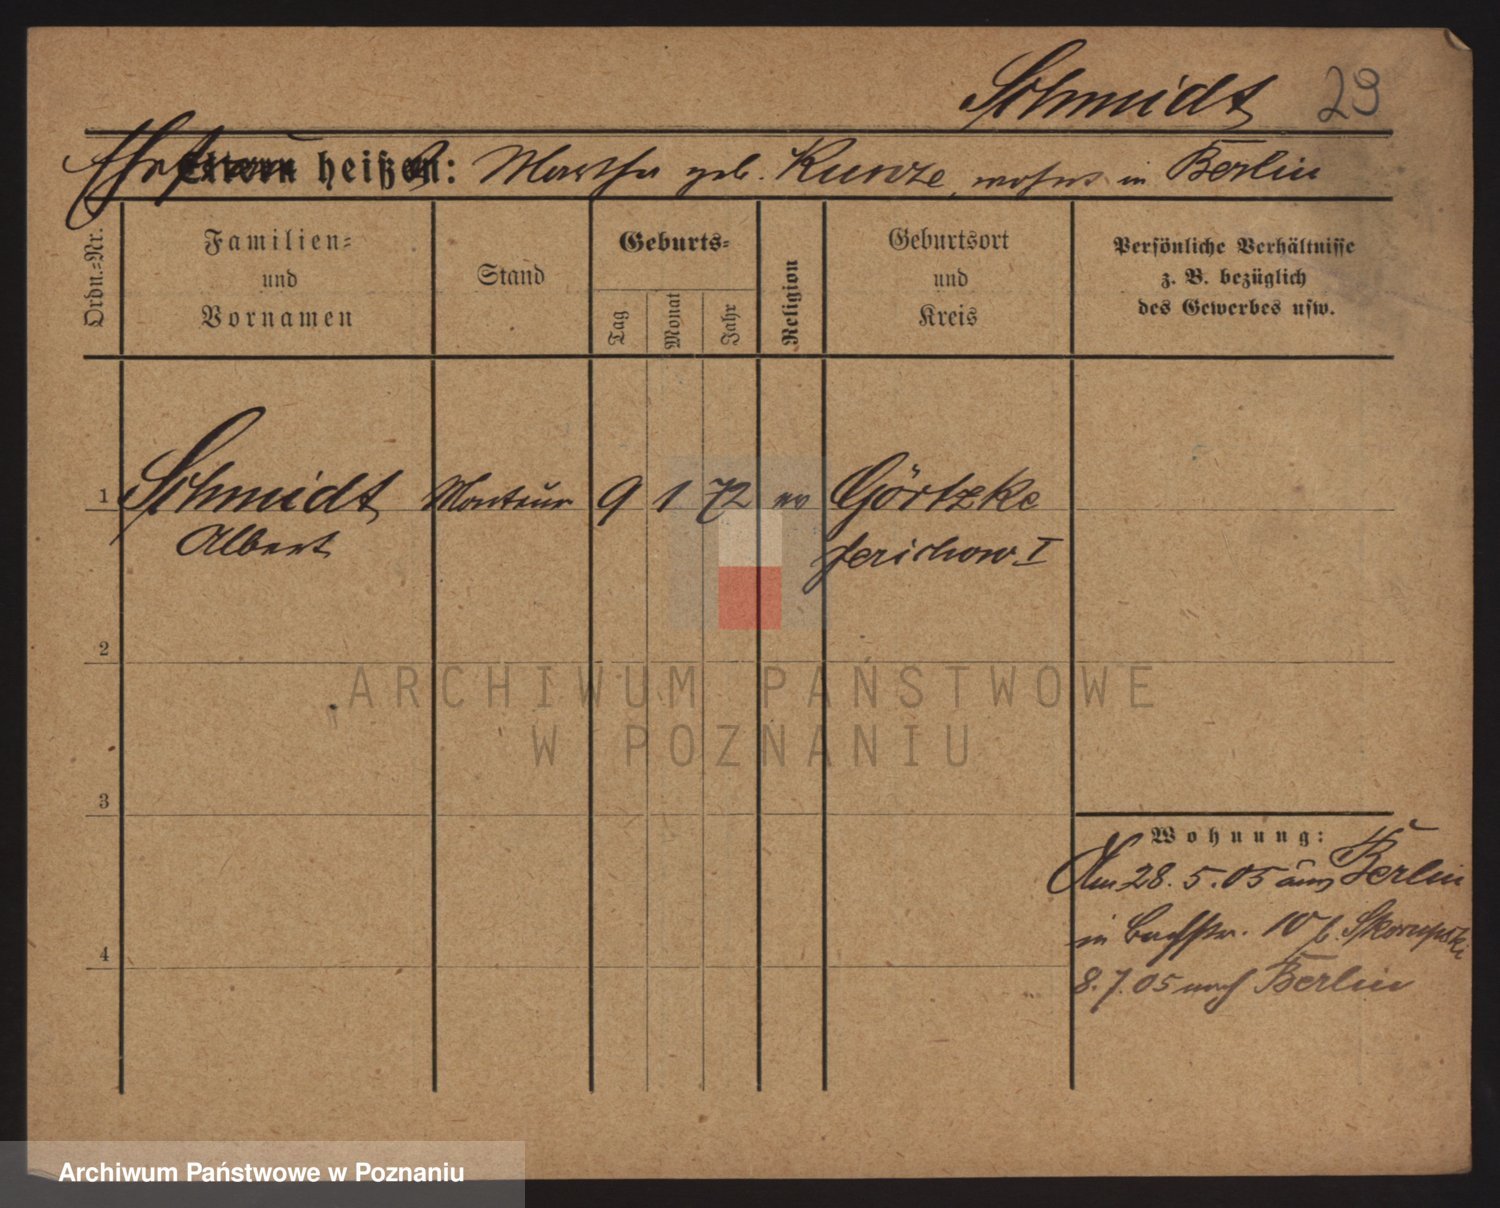 Schmidt 29
Ehefrau heißt: Martha geb. Kunze, wohnt in Berlin
Ordn.-Nr.
Familien-
und
Vornamen
Stand
Geburts-
Tag
Monat
Jahr
Religion
Geburtsort
und
Kreis
Persönliche Verhältnisse
z. B. bezüglich
des Gewerbes usw.
1 Schmidt Monteur 9 1 72 ev Görtzke
Albert Jerichow I
2
3
4
Wohnung:
Am 28. 5. 05 aus Berlin
in Bachstr. 10 b. Skorupski
8. 7. 05 nach Berlin
ARCHIWUM PAŃSTWOWE
W POZNANIU
Archiwum Państwowe w Poznaniu